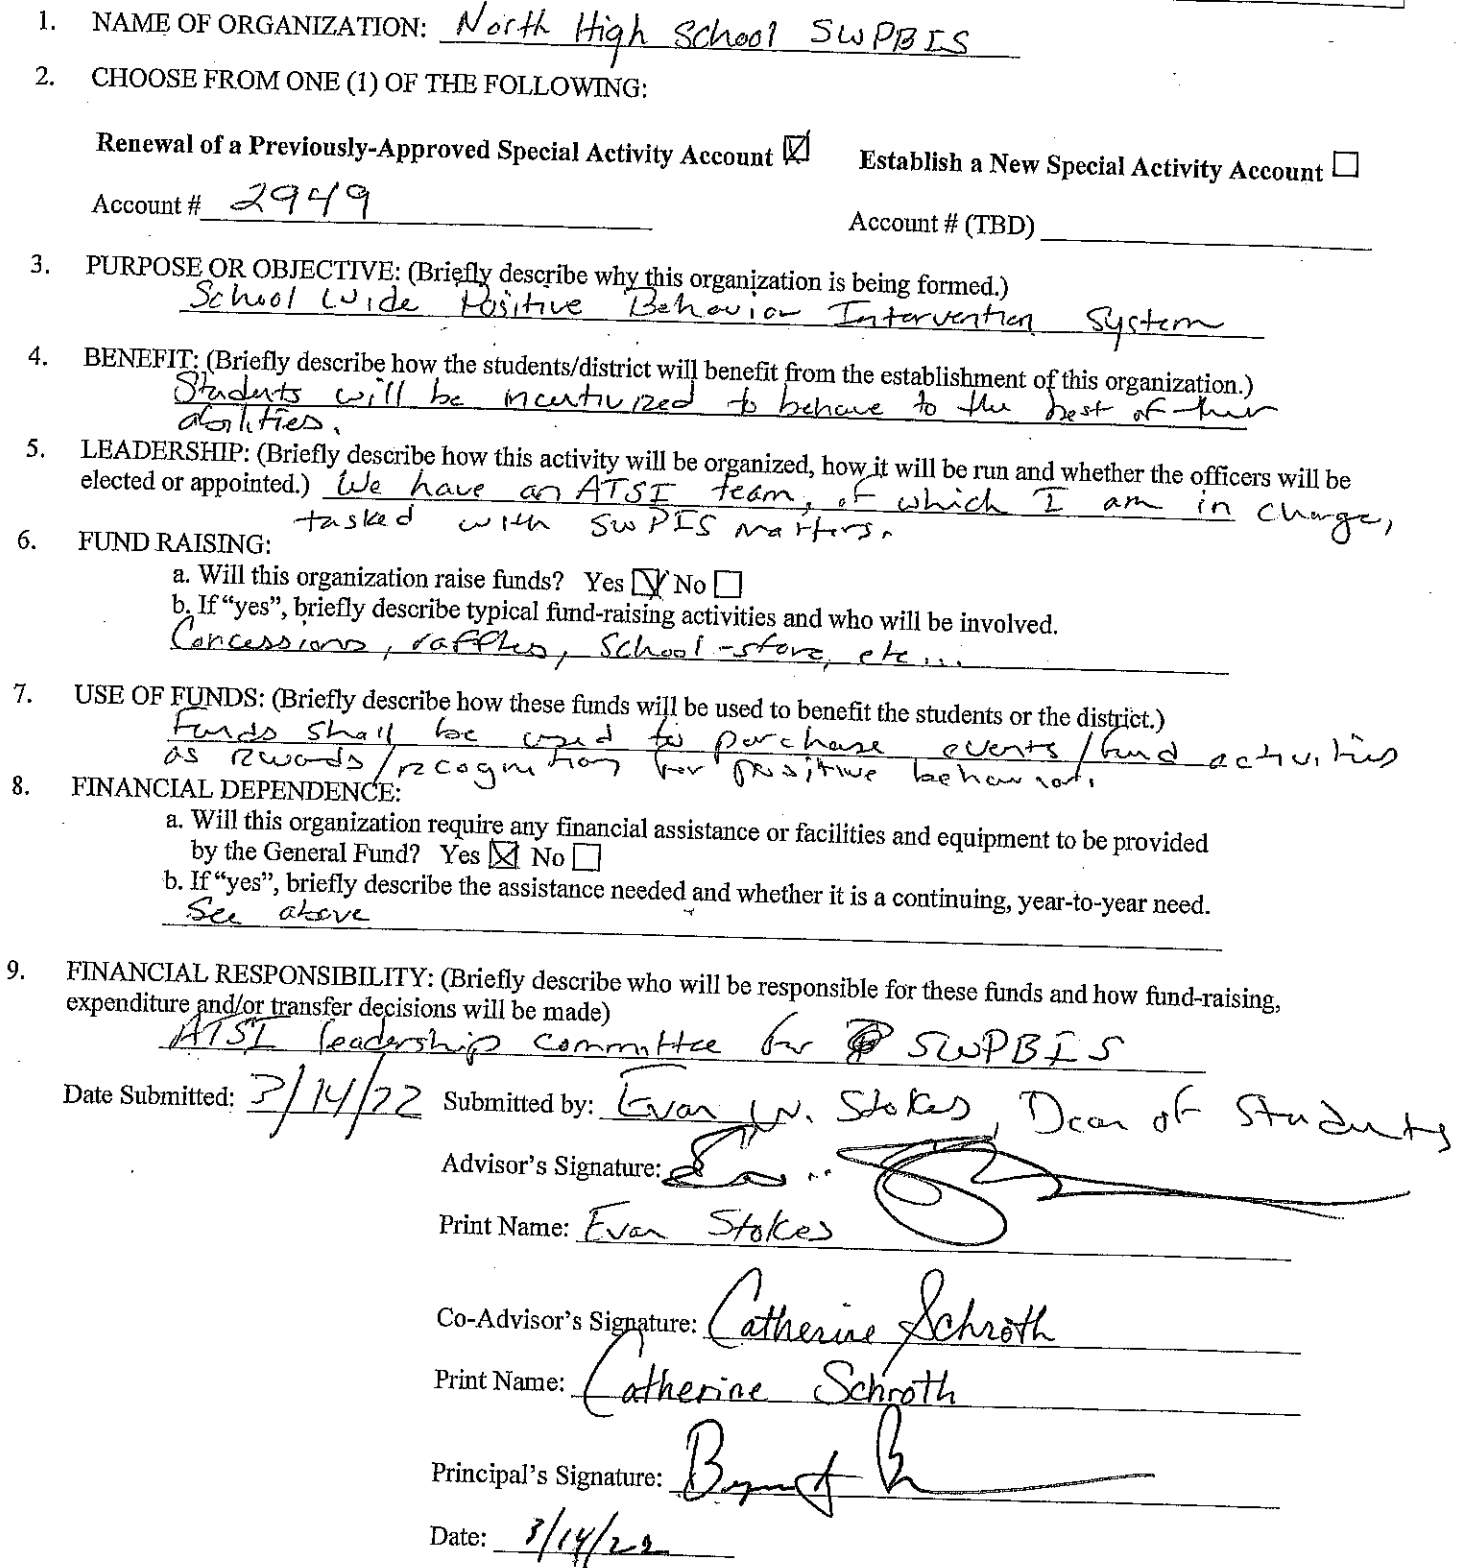 1. NAME OF ORGANIZATION: North High School SWPBIS
2. CHOOSE FROM ONE (1) OF THE FOLLOWING:
Renewal of a Previously-Approved Special Activity Account ☑ Establish a New Special Activity Account ☐
Account # 2949 Account # (TBD)
3. PURPOSE OR OBJECTIVE: (Briefly describe why this organization is being formed.)
School Wide Positive Behavior Intervention System
4. BENEFIT: (Briefly describe how the students/district will benefit from the establishment of this organization.)
Students will be incentivized to behave to the best of their
abilities.
5. LEADERSHIP: (Briefly describe how this activity will be organized, how it will be run and whether the officers will be
elected or appointed.) We have an ATSI team, of which I am in charge,
tasked with SWPIS matters.
6. FUND RAISING:
a. Will this organization raise funds? Yes ☑ No ☐
b. If "yes", briefly describe typical fund-raising activities and who will be involved.
Concessions, raffles, School-store, etc...
7. USE OF FUNDS: (Briefly describe how these funds will be used to benefit the students or the district.)
Funds shall be used to purchase events/fund activities
as rewards/recognition for positive behavior.
8. FINANCIAL DEPENDENCE:
a. Will this organization require any financial assistance or facilities and equipment to be provided
by the General Fund? Yes ☒ No ☐
b. If "yes", briefly describe the assistance needed and whether it is a continuing, year-to-year need.
See above
9. FINANCIAL RESPONSIBILITY: (Briefly describe who will be responsible for these funds and how fund-raising,
expenditure and/or transfer decisions will be made)
ATSI leadership committee for SWPBIS
Date Submitted: 3/14/22 Submitted by: Evan W. Stokes, Dean of Students
Advisor's Signature:
Print Name: Evan Stokes
Co-Advisor's Signature: Catherine Schroth
Print Name: Catherine Schroth
Principal's Signature:
Date: 3/14/22